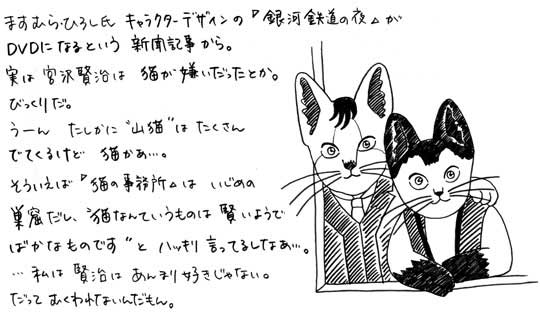 ますむら・ひろし氏 キャラクターデザインの『銀河鉄道の夜』が
DVDになるという 新聞記事から。
実は宮沢賢治は 猫が嫌いだったとか。
びっくりだ。
うーん たしかに"山猫"は たくさん
でてくるけど 猫かぁ…。
そういえば『猫の事務所』は いじめの
巣窟だし、"猫なんていうものは 賢いようで
ばかなものです"と ハッキリ言ってるしなぁ…。
…私は 賢治は あんまり好きじゃない。
だって むくわれないんだもん。